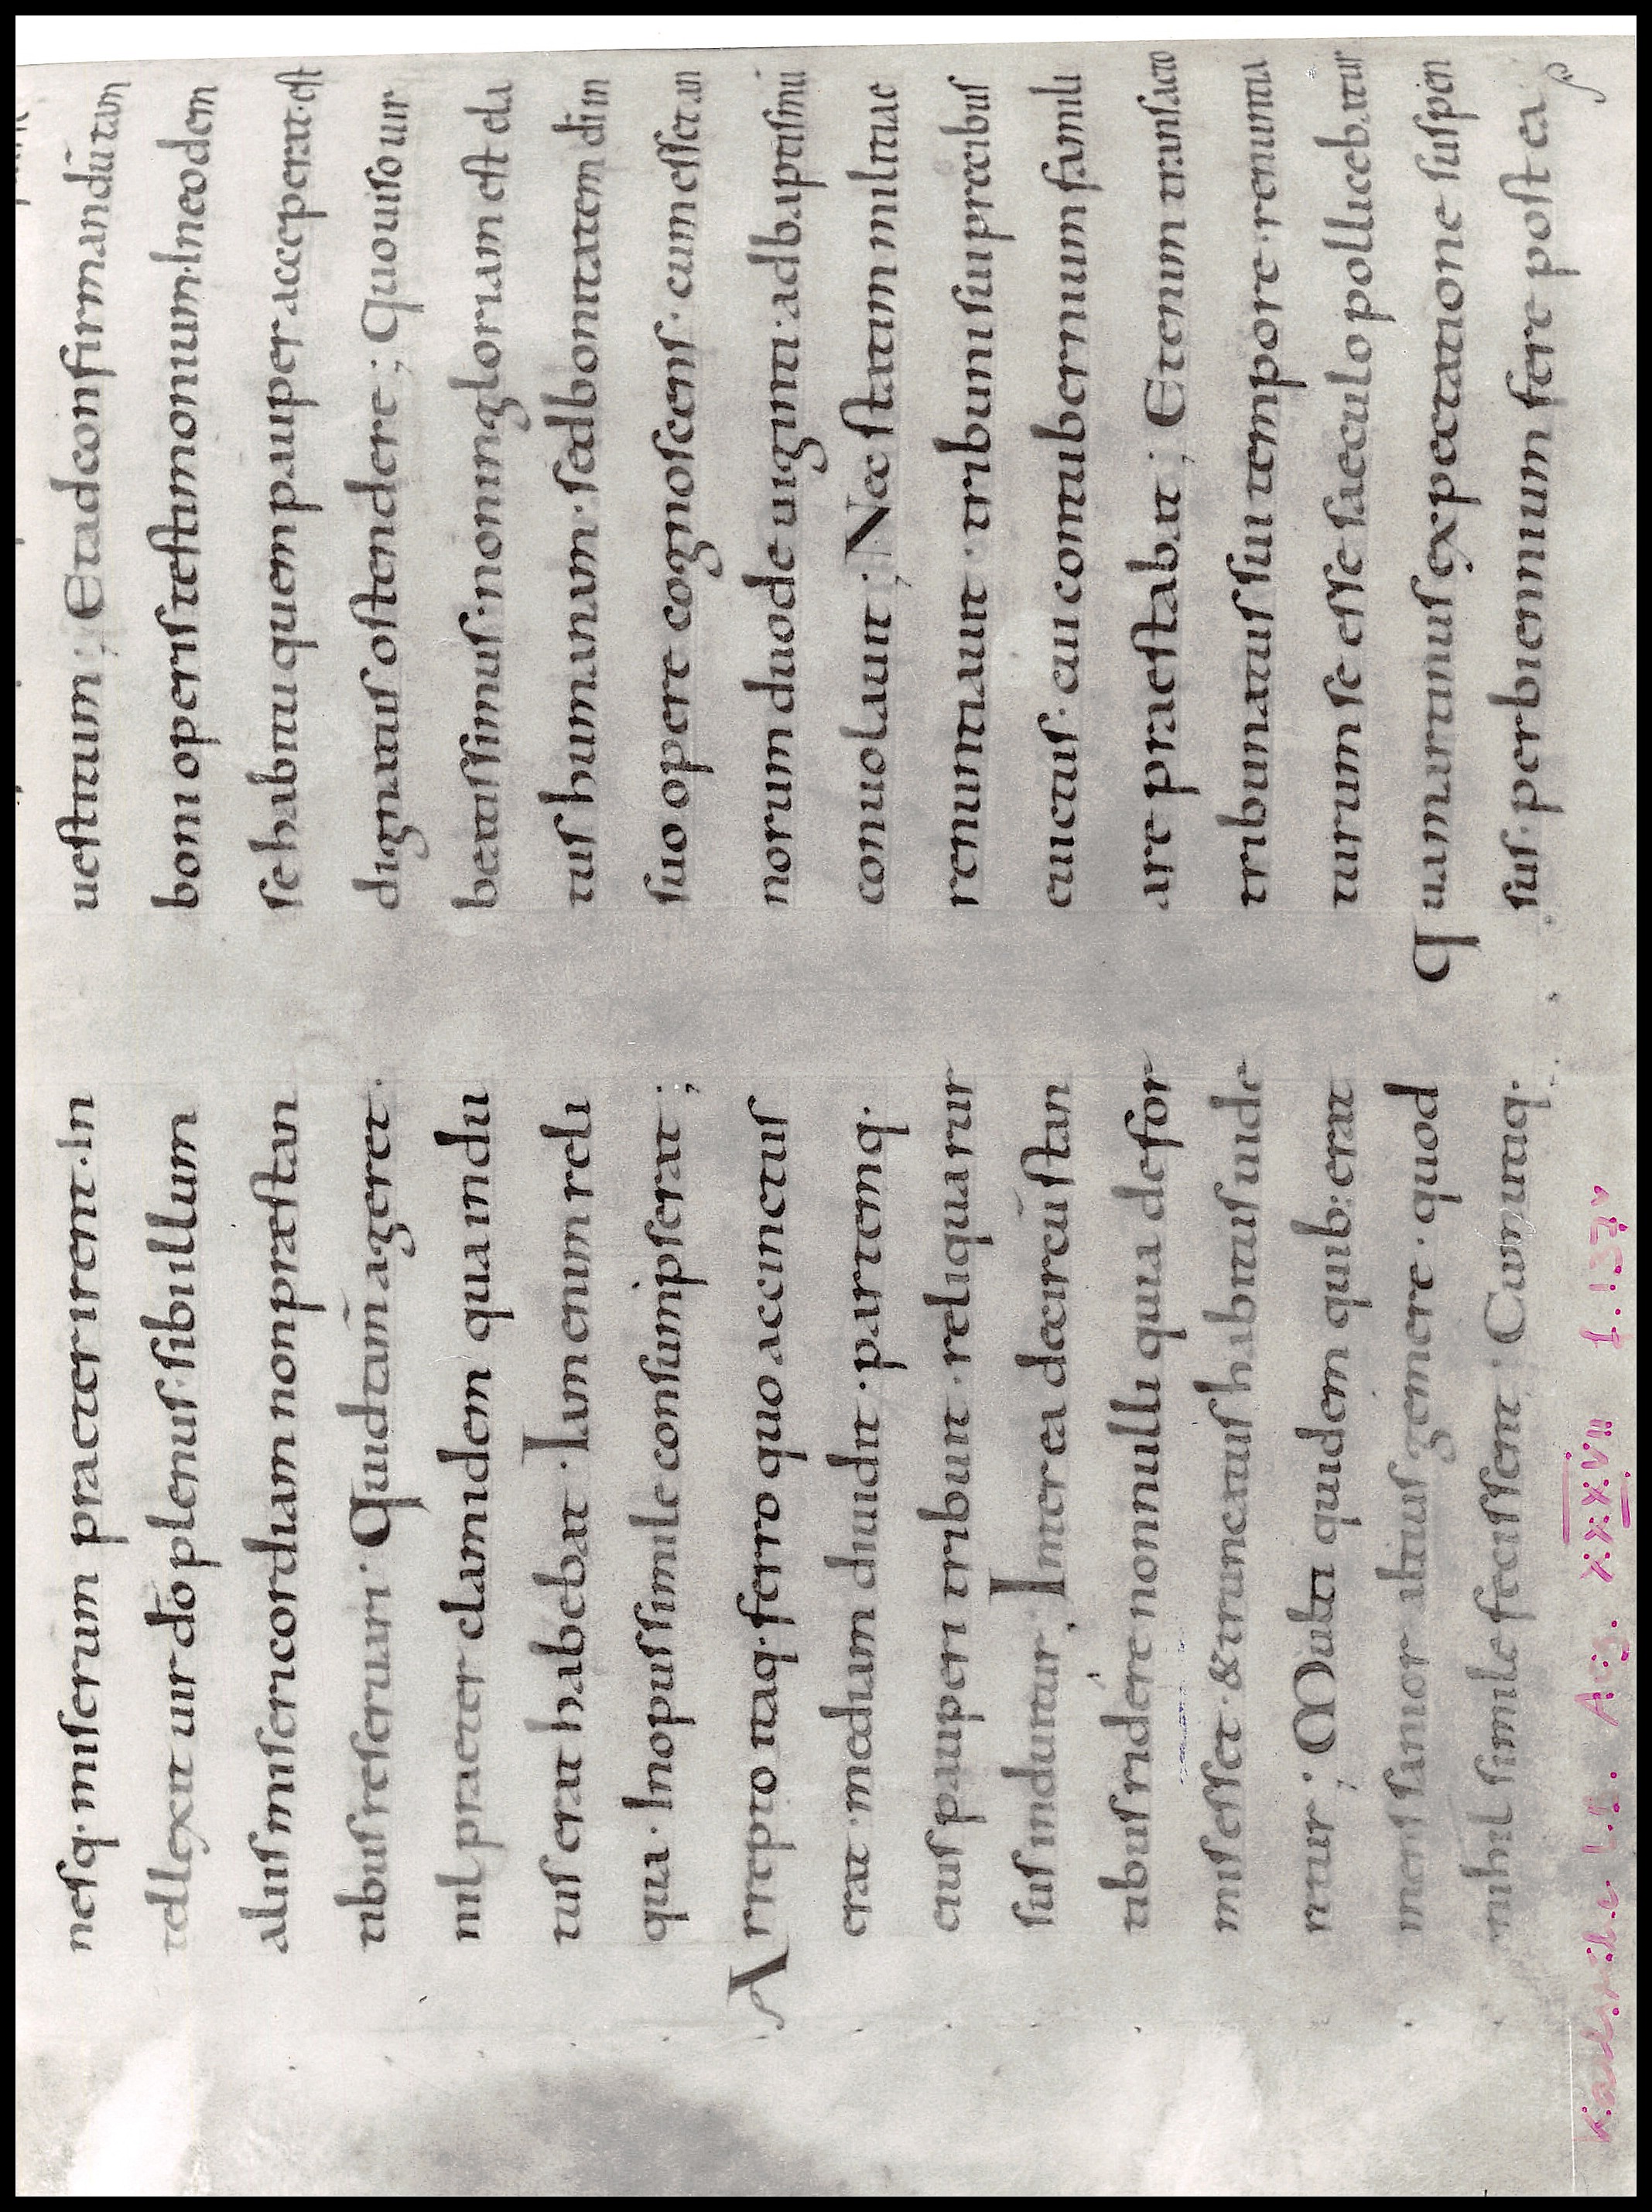 nesq· miserum praeterirent· In
tellexit uir dō plenus· sibi illum
aliis misericordiam non præstan
tibus reseruari· Quid tam̄ ageret·
nil praeter clamidem qua indu
tus erat habebat· Iam enim reli
qua· In opus simile consumpserat;
Arrepto itaq· ferro quo accinctus
erat· mediam diuidit· partemq·
eius pauperi tribuit· reliqua rur
sus induitur. Interea de circū stan
tibus ridere nonnulli quia defor
mis esset· & truncatus habitus uide
retur; Multi quidem quib: erat
mens sanior altius gemere· quod
nihil simile fecissent; Cum utiq·
uestitum; Et ad confirmandū tam
boni operis testimonium· In eodem
se habitu quem pauper acceperat· est
dignatus ostendere; Quo uiso uir
beatissimus· non in gloriam est ela
tus humanam· sed bonitatem di in
suo opere cognoscens· cum esset an
norum duode uiginti· ad baptismū
conuolauit; Nec statim militiae
renuntiauit· tribuni sui precibus
euictus· cui contubernium famili
are praestabat; Etenim transacto
tribunatus sui tempore· renuntia
turum se esse saeculo pollicebatur
Qua martinus expectatione suspen
sus· per biennium fere post ea
Karlsruhe L.B. Aug. XXXVII f. 132v